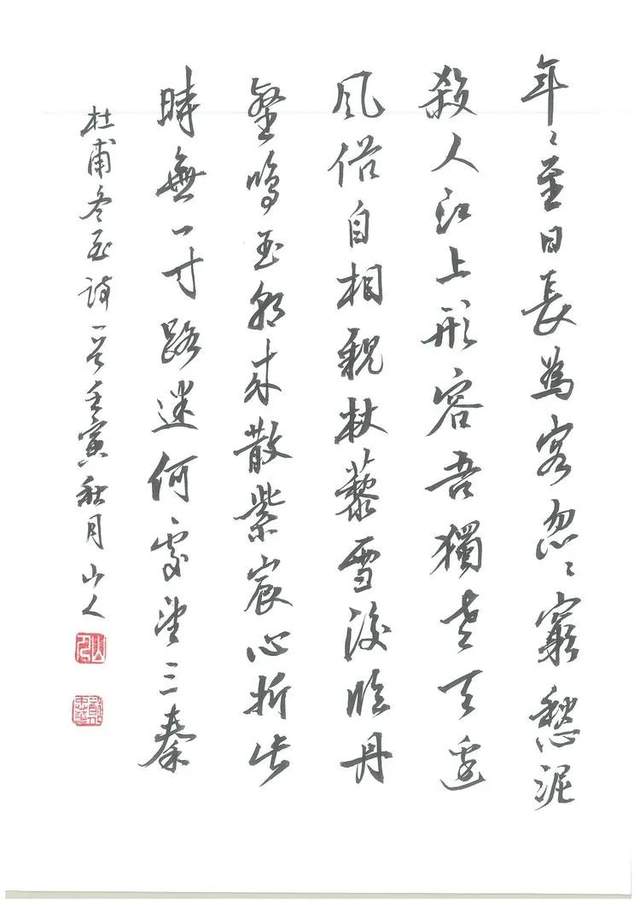 年〻至日長為客忽〻窮愁泥
殺人江上形容吾獨老天邊
風俗自相親杖藜雪後臨丹
壑鳴玉朝來散紫宸心折此
時無一寸路迷何處望三秦
杜甫冬至詩一首壬寅秋月山人